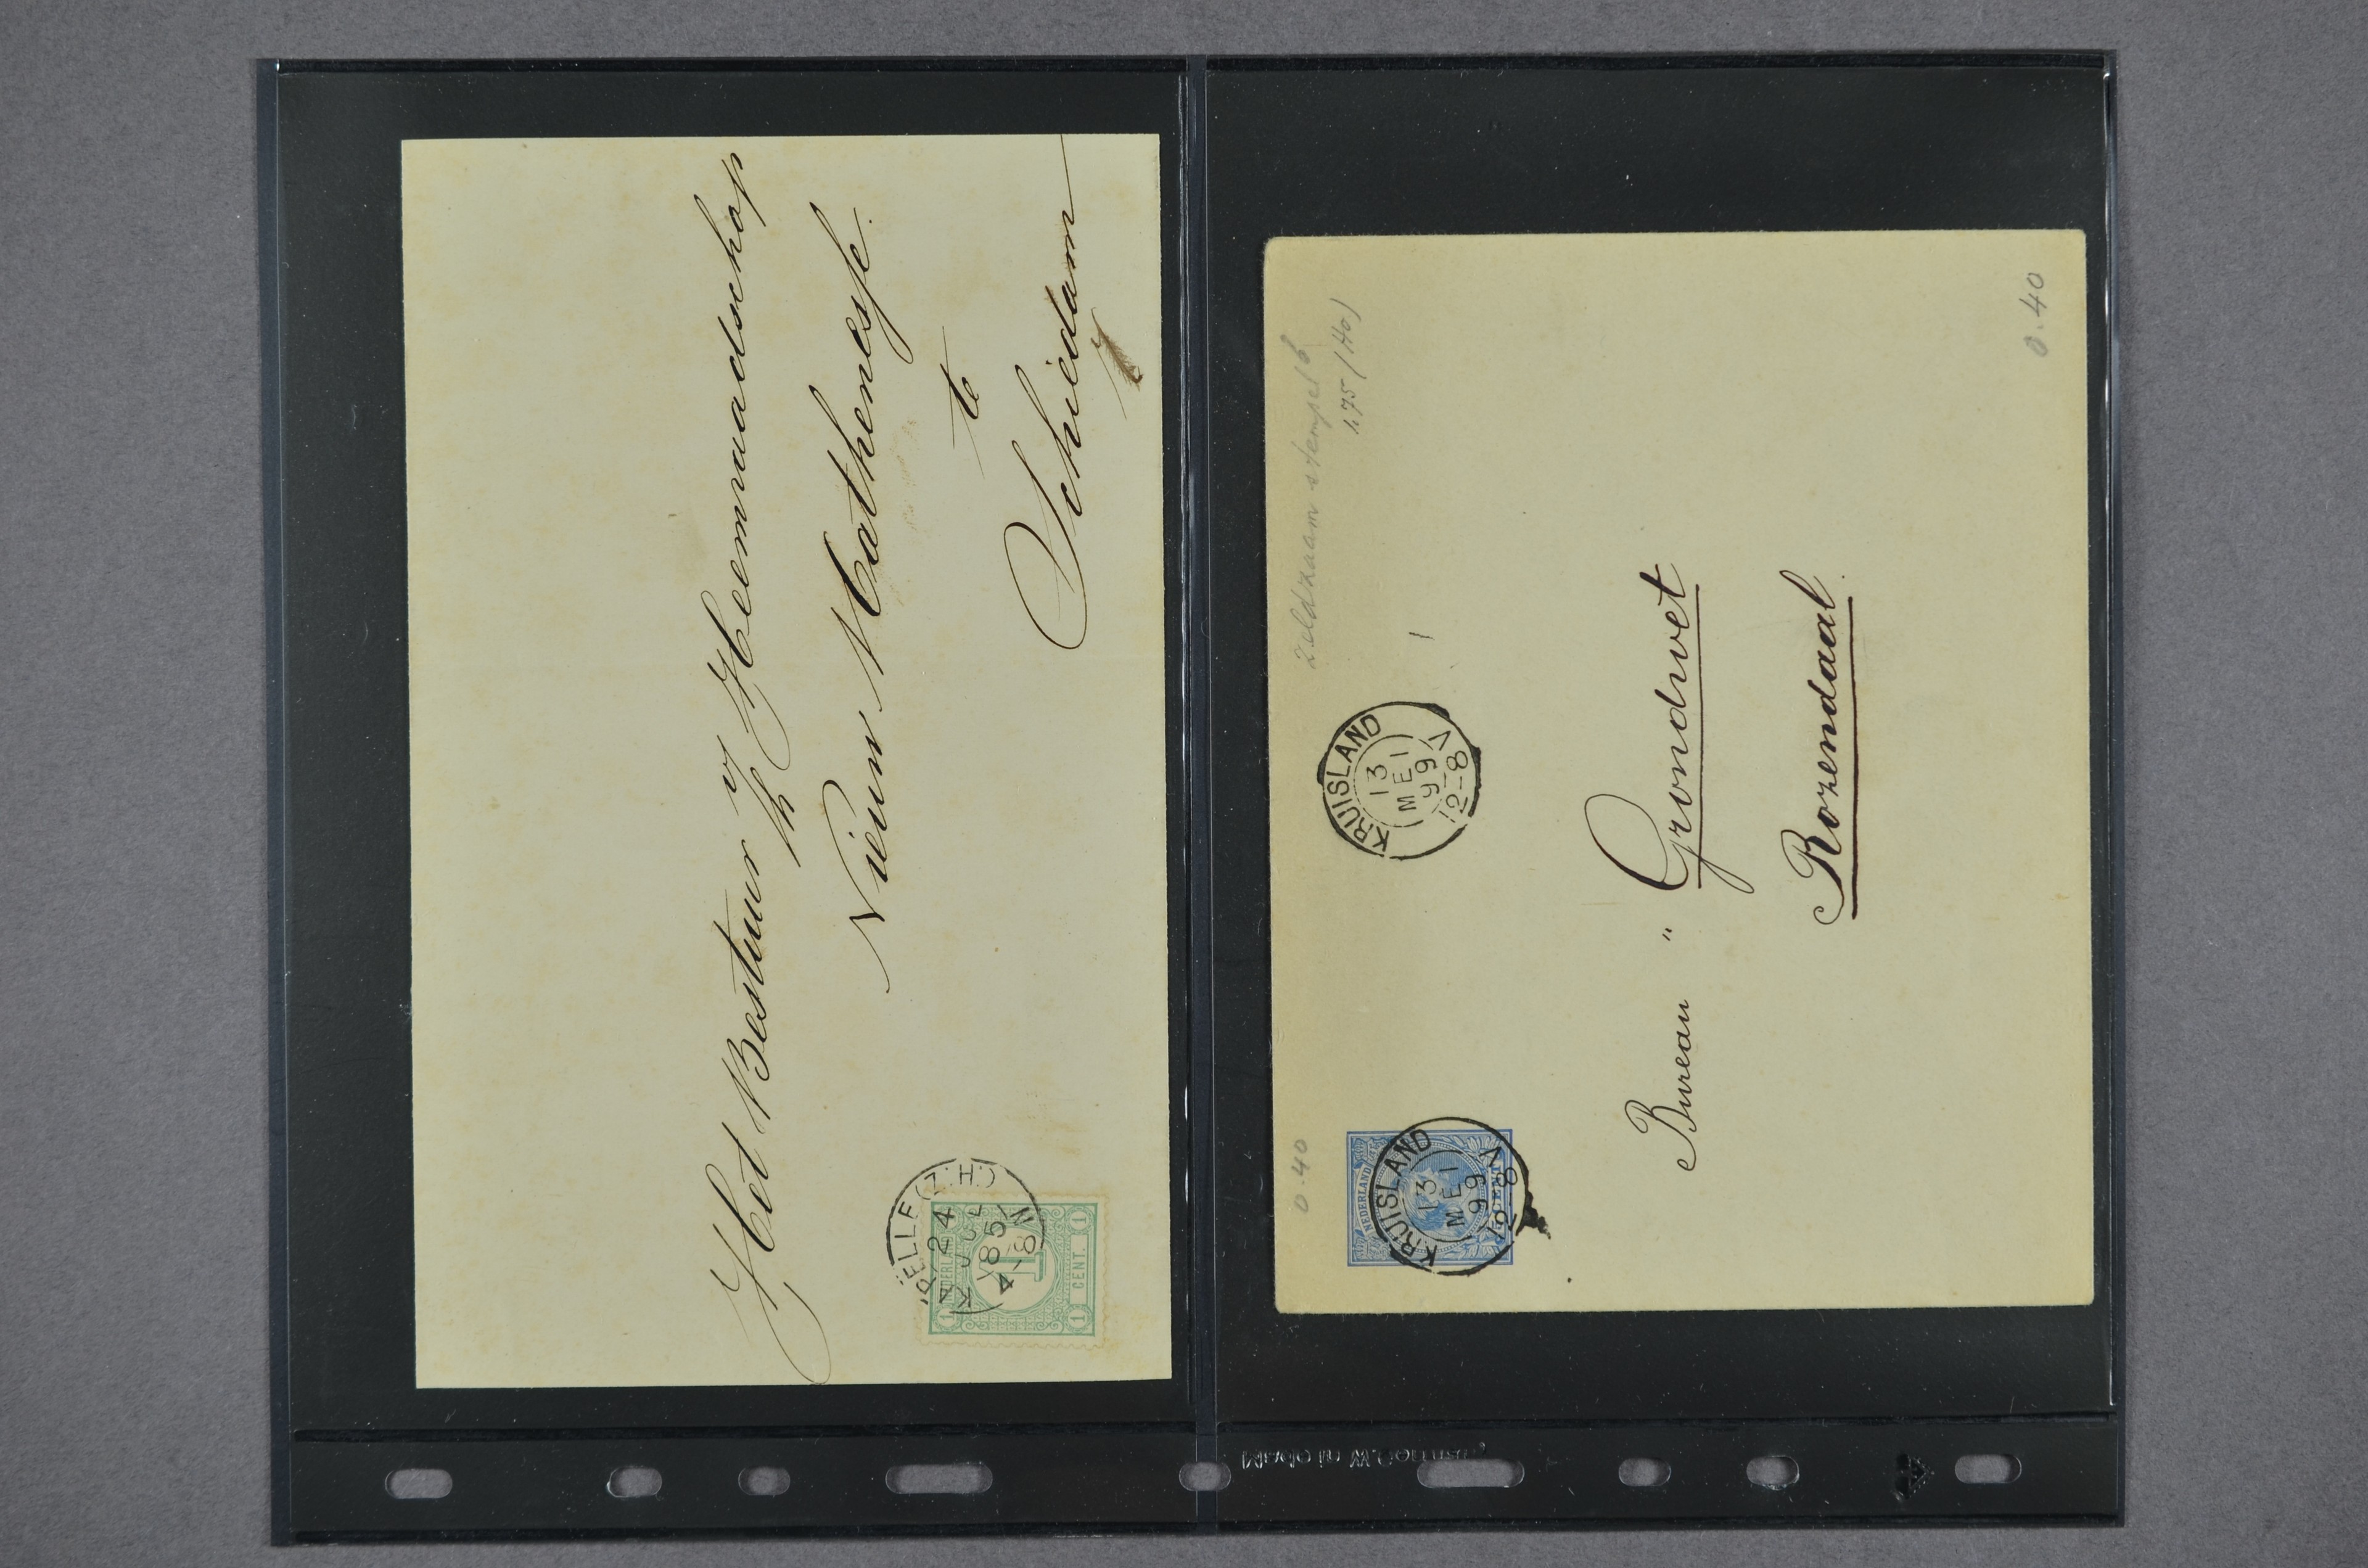 Het Bestuur v/h Heemraadschap
Nieuw Mathenesse
te
Schiedam
(Z:H:)
24
85
4-8N
1
1
1
1 CENT.
1
Zeldzaam stempel
0.40
KRUISLAND
13
MEI
99
12-8V
NEDERLAND
KRUISLAND
13
MEI
99
12-8V
Bureau " Grondwet
Rozendaal
0.40
Made in W.Germany